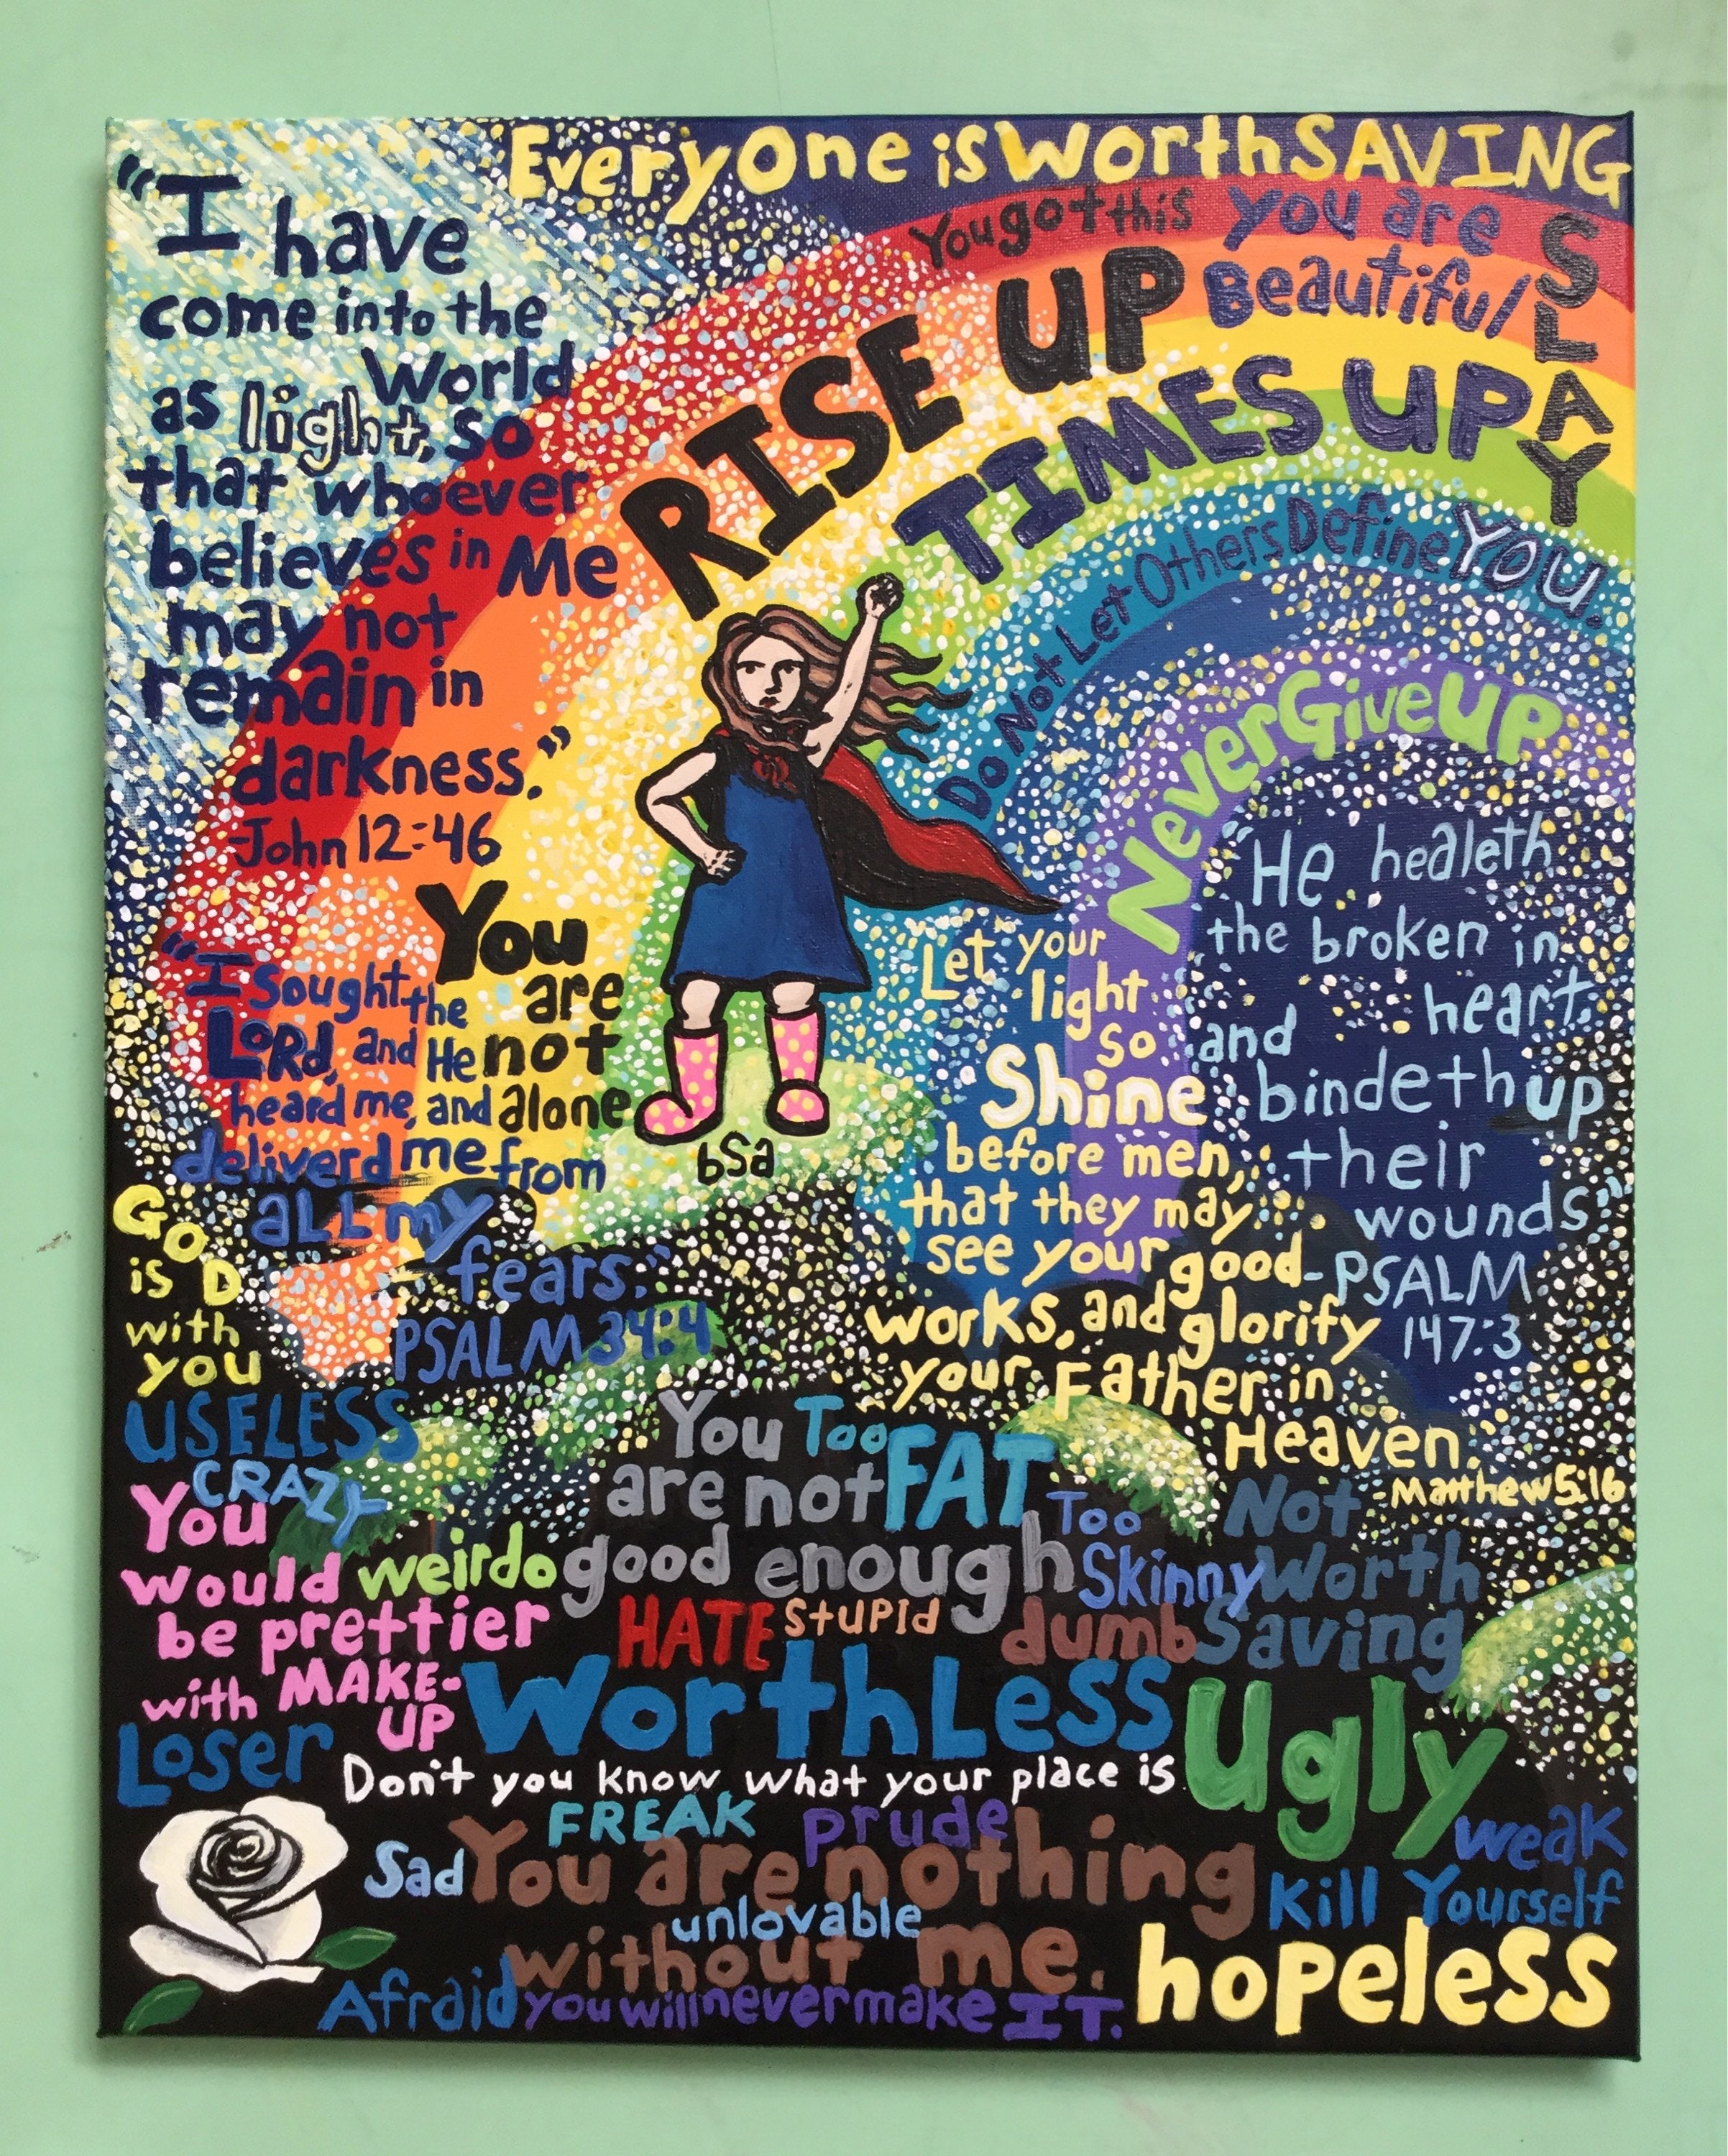 EveryOne is Worth SAVING
You got this
you are
Beautiful
SLAY
RISE UP
TIMES UP
Do Not Let Others Define YOU.
Never Give UP
"I have
come into the
World
as light, so
that whoever
believes in Me
may not
remain in
darkness."
-John 12:46
You
are
not
alone
"I sought the
LORD, and He
heard me, and
deliverd me from
ALL my
fears."
PSALM 34:4
bsa
Let your
light
so
Shine
before men,
that they may
see your good
works, and glorify
your Father in
Heaven.
-Matthew 5:16
"He healeth
the broken in
heart,
and
bindeth up
their
wounds"
-PSALM
147:3
GOD
is
with
you
USELESS
CRAZY
You
would
be prettier
with MAKE-
UP
weirdo
You
are not
good enough
Too
FAT
Too
Skinny
Not
Worth
Saving
HATE
stupid
dumb
Loser
WorthLess
Ugly
Don't you know what your place is.
FREAK
prude
weak
Sad
You are nothing
without me.
unlovable
Kill Yourself
Afraid
you will never make IT.
hopeless